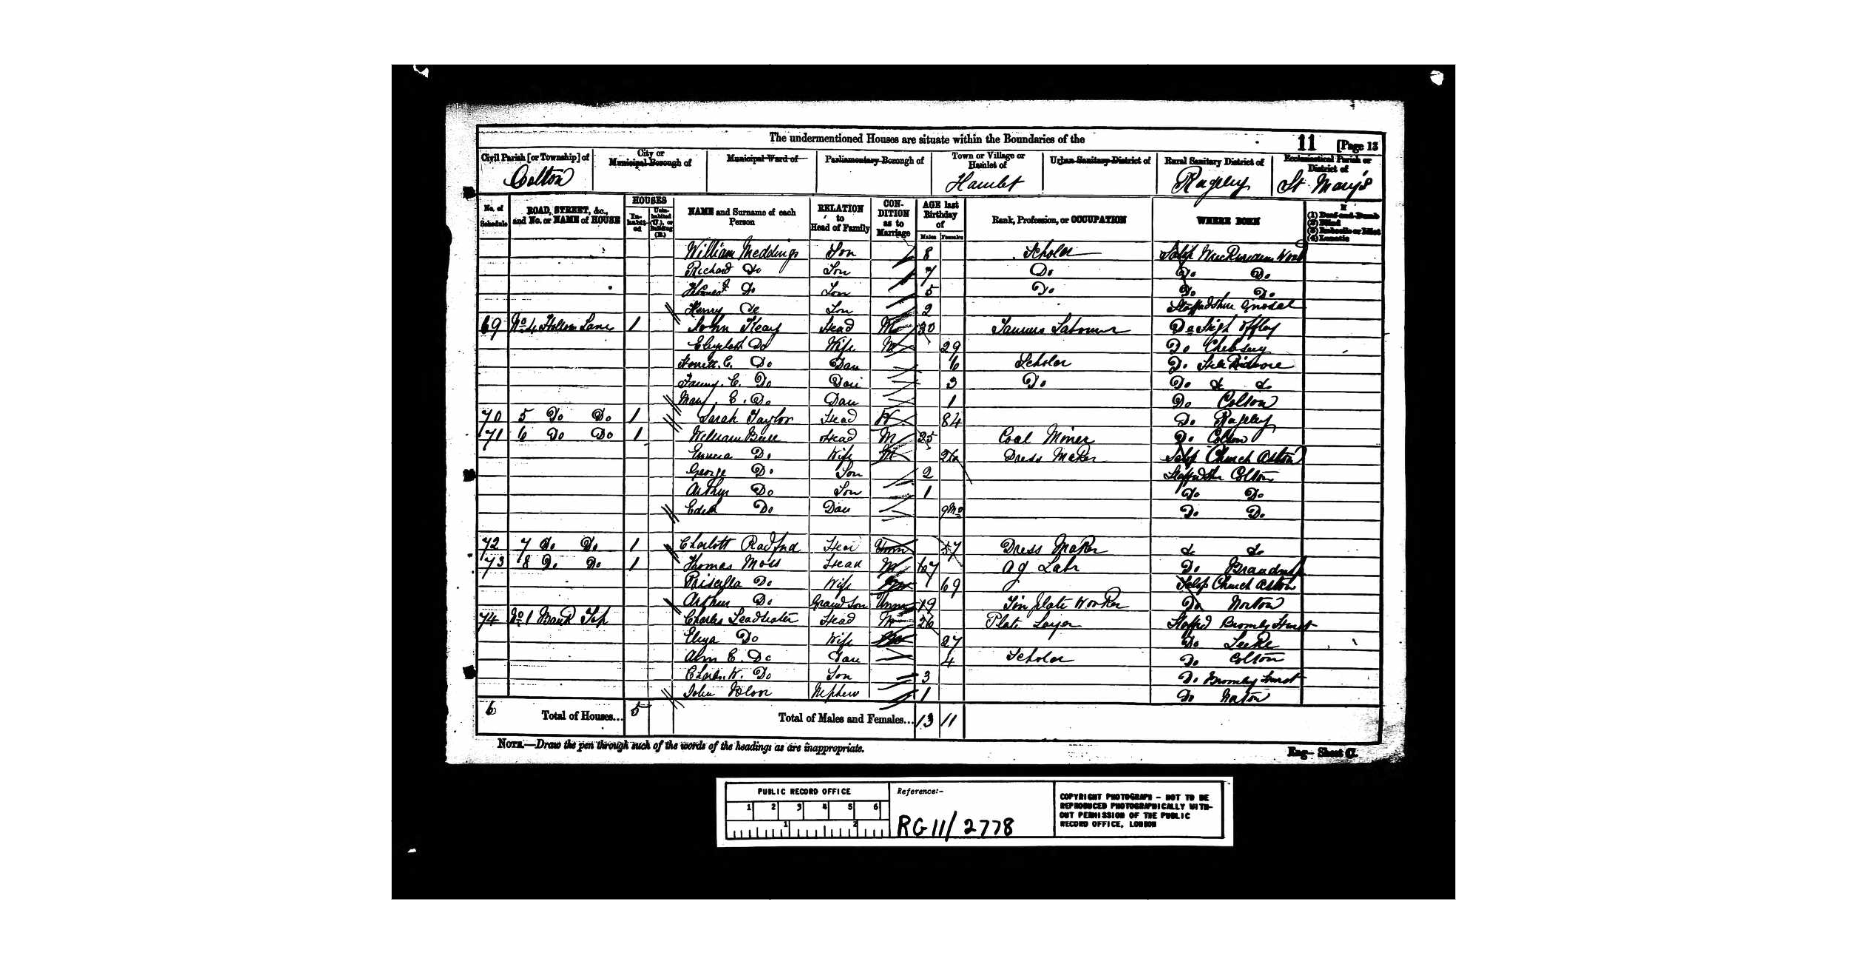 The undermentioned Houses are situate within the Boundaries of the 11 [Page 13
Civil Parish [or Township] of City or Municipal Borough of Municipal Ward of Parliamentary Borough of Town or Village or Hamlet of Urban Sanitary District of Rural Sanitary District of Ecclesiastical Parish or District of
Colton Hamlet Rugeley St Mary's
No. of Schedule ROAD, STREET, &c., and No. or NAME of HOUSE HOUSES Inhabited Uninhabited (U.), or Building (B.) NAME and Surname of each Person RELATION to Head of Family CONDITION as to Marriage AGE last Birthday of Males Females Rank, Profession, or OCCUPATION WHERE BORN If (1) Deaf-and-Dumb (2) Blind (3) Imbecile or Idiot (4) Lunatic
William Meddings Son 8 Scholar Salop
Richard Do Son 7 Do Do Do
Do Son 5 Do Do Do
Henry Do Son 2 Staffordshire Gnosal
69 No 4 Hollow Lane 1 John Keay Head M 30 Labourer Do High Offley
Elizabeth Do Wife M 29 Do Chebsey
E. Do Dau 6 Scholar Do
Fanny E. Do Dau 3 Do Do do do
Mary E. Do Dau 1 Do Colton
70 5 Do Do 1 Sarah Taylor Head W 84 Do Rugeley
71 6 Do Do 1 William Head M 25 Coal Miner Do Colton
Emma Do Wife M Dress Maker Salop Church Aston
George Do Son 2 Staffordshire Colton
Arthur Do Son 1 Do Do
Edith Do Dau 9 Mo Do Do
72 7 Do Do 1 Charlott Radford Head Unm 57 Dress Maker do do
73 8 Do Do 1 Thomas Moss Head M 67 Ag Labr Do
Priscilla Do Wife 69 Salop Church Aston
Arthur Do Grand Son Unm 19 Tin plate Worker Do Norton
74 No 1 Bank Top Charles Leadbeater Head M 26 Plate Layer Stafford Bromley Hurst
Eliza Do Wife 27 Do Leeke
Ann E. Do Dau 4 Scholar Do Colton
Charles W. Do Son 3 Do Bromley hurst
John Nephew 1 Do
6 Total of Houses... 5 Total of Males and Females... 13 11
NOTE.—Draw the pen through such of the words of the headings as are inappropriate. Eng— Sheet C.
PUBLIC RECORD OFFICE
1 2 3 4 5 6
1 2
Reference:-
RG 11/2778
COPYRIGHT PHOTOGRAPH – NOT TO BE
REPRODUCED PHOTOGRAPHICALLY WITH-
OUT PERMISSION OF THE PUBLIC
RECORD OFFICE, LONDON